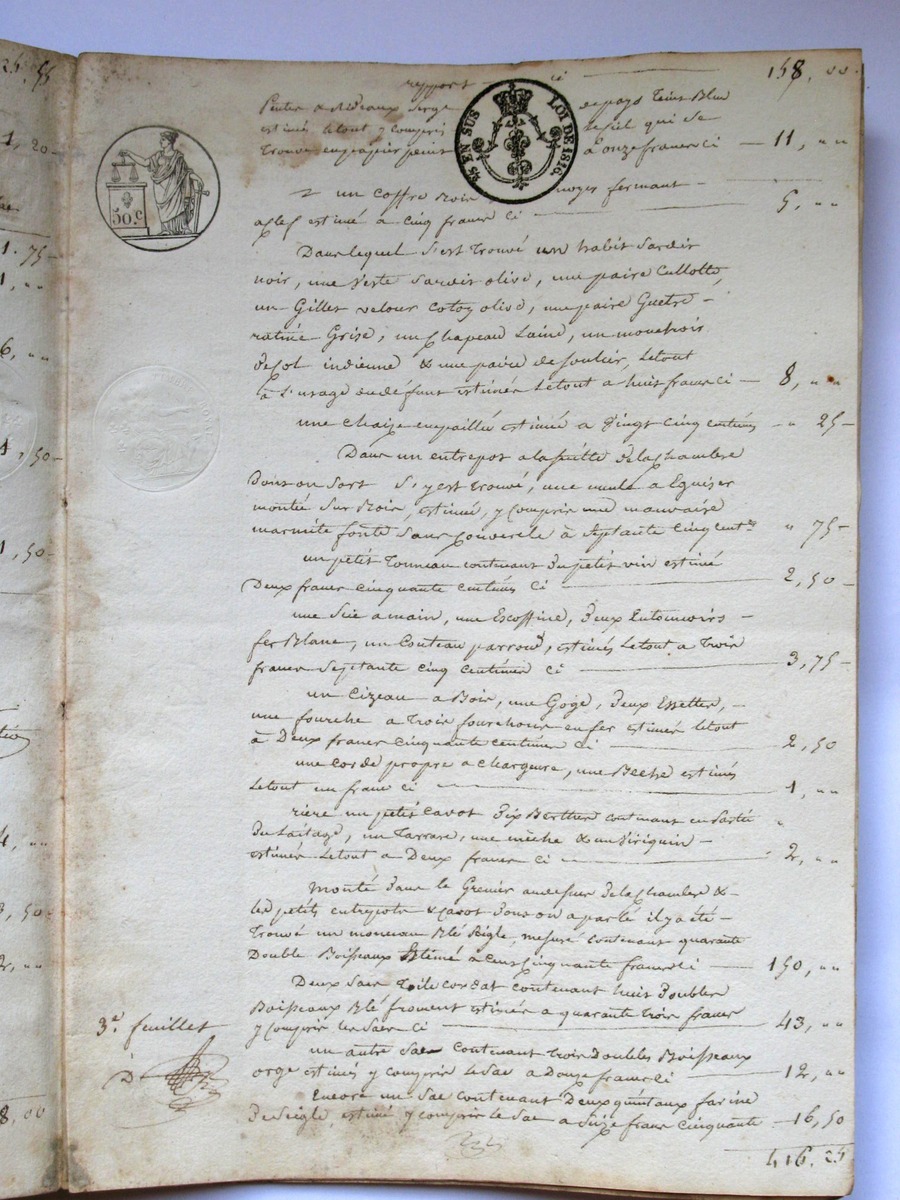 report ci 158, 00
Pente & Rideaux Serge de pays teint Bleu
estimés le tout y compris le fiel qui se
trouve en papier peint à onze francs ci 11, " "
2 un coffre Bois noyer fermant
a clef estimé à cinq francs ci 5, " "
Dans lequel s'est trouvé un habit Sardis
noir, une Veste Sardis olive, une paire Cullotte,
un Gillet velour coton olive, une paire Guetre
ratiné Grise, un Chapeau Laine, un mouchoir
de col indienne & une paire de soulier, le tout
à l'usage du defunt estimés Le tout a huit francs ci 8, " "
une chaize empaillée estimée a Vingt Cinq centimes " 25
Dans un entrepot a la suitte de la Chambre
Dont on sort S'y est trouvé, une meule a Eguiser
montée sur Bois, estimée, y compris une mauvaise
marmite fonte sans couvercle à Septante Cinq centes " 75
un petit Tonneau contenant Du petit vin estimé
Deux francs cinquante centimes ci 2, 50
une Scie a main, une Escoffine, Deux Entonnoirs
fer Blanc, un Couteau parroud, estimés Le tout a trois
francs Septante cinq centimes ci 3, 75
un Cizeau a Bois, une Goge, Deux Essettes,
une fourche a trois fourchons en fer estimés le tout
à Deux francs cinquante centimes ci 2, 50
une corde propre a chargeure, une Beche estimés
Le tout un franc ci 1, " "
rière un petit cavot Dix Berthes contenant en partie "
Du Laitage, un Tarrare, une mêche & un Viriquin
estimés Le tout a Deux francs ci 2, " "
Monté dans le Grenier au dessus de la Chambre &
les petits entrepots & cavot dont on a parlé il y a été
Trouvé un monceau Blé Seigle, mesuré contenant quarante
Double Boisseaux Estimé a cent cinquante francs ci 150, " "
Deux Sacs toile cordat contenant huit Doubles
Boisseaux Blé froment estimés a quarante trois francs
y compris les Sacs ci 43, " "
un autre Sac contenant trois Doubles Boisseaux
orge estimés y compris le Sac a Douze francs ci 12, " "
Encore un Sac contenant Deux quintaux farine
De Seigle, estimé y compris le Sac a Seize francs cinquante 16, 50
416. 25
3e feuillet
50 c
25 EN SUS
LOI DE 1816
25, 55
1, 20
1. 75
1, " "
6, " "
1, 50
1, 50
4, " "
3, 50
2, " "
8, 00